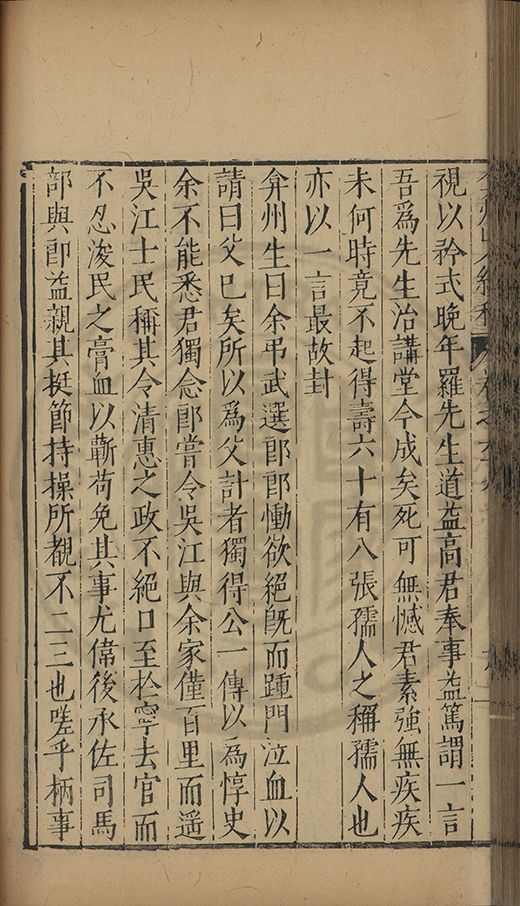 視以矜式晚年羅先生道益高君奉事益篤謂一言
吾爲先生治講堂今成矣死可無憾君素強無疾疾
未何時竟不起得壽六十有八張孺人之稱孺人也
亦以一言最故封
弇州生曰余弔武選郎郎慟欲絕旣而踵門泣血以
請曰父已矣所以爲父計者獨得公一傳以爲惇史
余不能悉君獨念郎嘗令吳江與余家僅百里而遥
吳江士民稱其令清惠之政不絕口至於寧去官而
不忍浚民之膏血以蘄苟免其事尤偉後承佐司馬
部與郎益親其挺節持操所覩不二三也嗟乎柄事